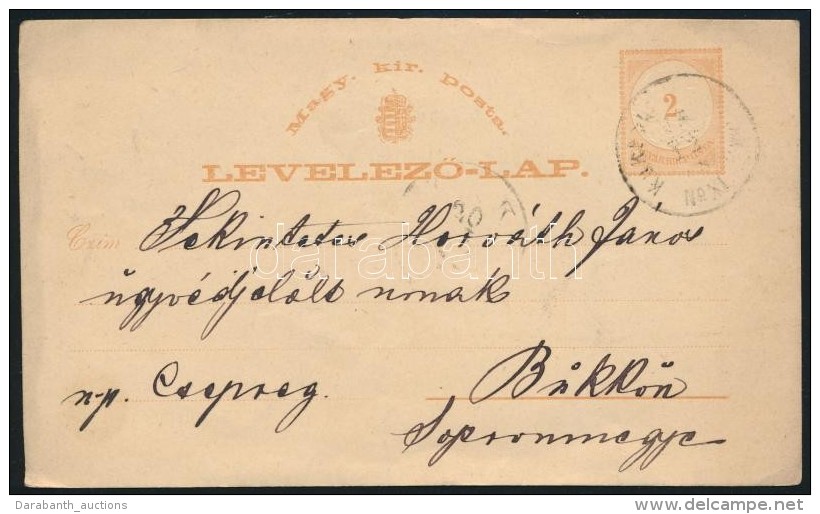 Magy. kir. posta.
2
LEVELEZŐ-LAP.
Czim Tekintetes Horváth Janos
ügyvédjelölt urnak
u.p. Csepreg.
Bükkön
Sopronmegye
darabanth
Darabanth_auctions
www.delcampe.net